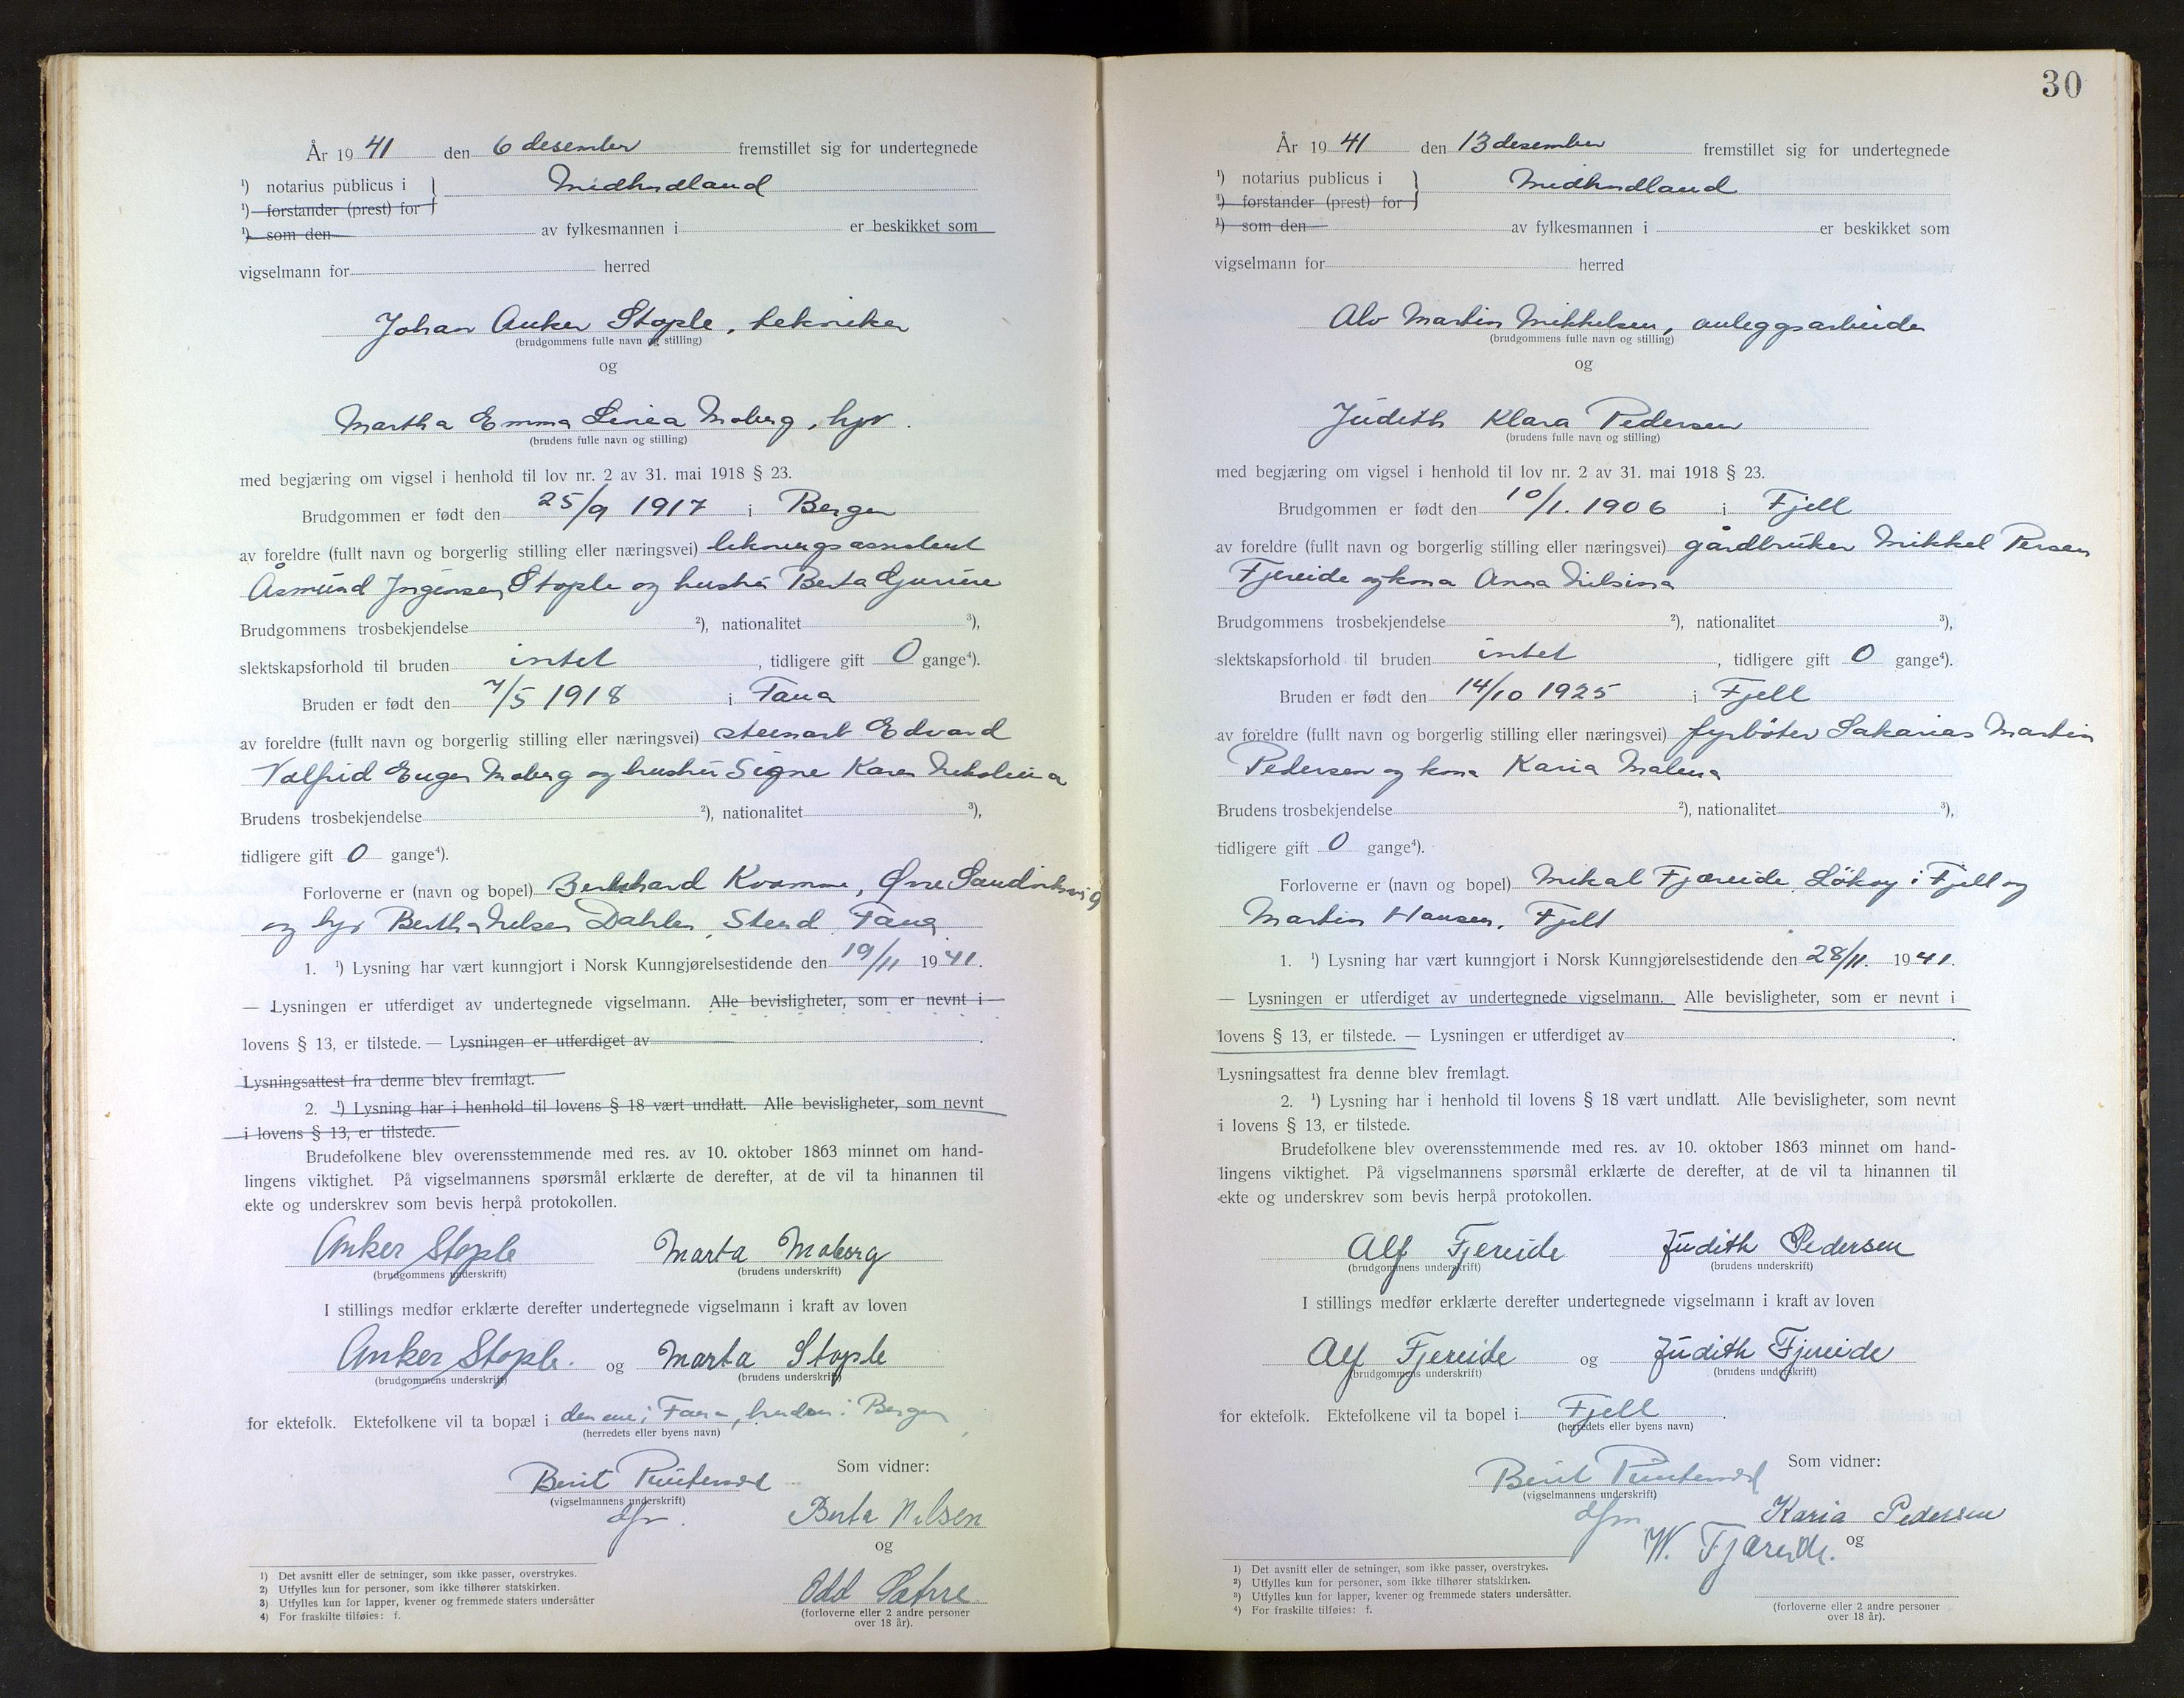 År 19 41 den 6 desember fremstillet sig for undertegnede
¹) notarius publicus i } Midhordland
¹) forstander (prest) for
¹) som den av fylkesmannen i er beskikket som
vigselmann for herred
Johan Anker Stople, tekniker
(brudgommens fulle navn og stilling)
og
Martha Emma Linea Moberg, hjv.
(brudens fulle navn og stilling)
med begjæring om vigsel i henhold til lov nr. 2 av 31. mai 1918 § 23.
Brudgommen er født den 25/9 1917 i Bergen
av foreldre (fullt navn og borgerlig stilling eller næringsvei)
Åsmund Jørgensen Stople og hustru Berta Gurine
Brudgommens trosbekjendelse ²), nationalitet ³),
slektskapsforhold til bruden intet , tidligere gift 0 gange⁴).
Bruden er født den 7/5 1918 i Fana
av foreldre (fullt navn og borgerlig stilling eller næringsvei) stunart Edvard
Valfrid Eugen Moberg og hustru Signe Karen Nikolina
Brudens trosbekjendelse ²), nationalitet ³),
tidligere gift 0 gange⁴).
Forloverne er (navn og bopel) Bernhard Kvamme, Øvre
og hjv Bertha Nilsen Dahlen, Stend, Fana
1. ¹) Lysning har vært kunngjort i Norsk Kunngjørelsestidende den 19/11 1941.
— Lysningen er utferdiget av undertegnede vigselmann. Alle bevisligheter, som er nevnt i
lovens § 13, er tilstede. — Lysningen er utferdiget av .
Lysningsattest fra denne blev fremlagt.
2. ¹) Lysning har i henhold til lovens § 18 vært undlatt. Alle bevisligheter, som nevnt
i lovens § 13, er tilstede.
Brudefolkene blev overensstemmende med res. av 10. oktober 1863 minnet om hand-
lingens viktighet. På vigselmannens spørsmål erklærte de derefter, at de vil ta hinannen til
ekte og underskrev som bevis herpå protokollen.
Anker Stople Marta Moberg
(brudgommens underskrift) (brudens underskrift)
I stillings medfør erklærte derefter undertegnede vigselmann i kraft av loven
Anker Stople. og Marta Stople
(brudgommens underskrift) (brudens underskrift)
for ektefolk. Ektefolkene vil ta bopæl i den ene i Fana, bruden i Bergen
(herredets eller byens navn)
Som vidner:
Berit
(vigselmannens underskrift)
dfm.
Berta Nilsen
og
Odd Sætre
(forloverne eller 2 andre personer
over 18 år).
1) Det avsnitt eller de setninger, som ikke passer, overstrykes.
2) Utfylles kun for personer, som ikke tilhører statskirken.
3) Utfylles kun for lapper, kvener og fremmede staters undersåtter
4) For fraskilte tilføies: f.
30
År 19 41 den 13 desember fremstillet sig for undertegnede
¹) notarius publicus i } Midhordland
¹) forstander (prest) for
¹) som den av fylkesmannen i er beskikket som
vigselmann for herred
Alv Martin Mikkelsen, anleggsarbeider
(brudgommens fulle navn og stilling)
og
Judith Klara Pedersen
(brudens fulle navn og stilling)
med begjæring om vigsel i henhold til lov nr. 2 av 31. mai 1918 § 23.
Brudgommen er født den 10/1. 1906 i Fjell
av foreldre (fullt navn og borgerlig stilling eller næringsvei) gårdbruker Mikkel Persen
Fjereide og kona Anna Nilsina
Brudgommens trosbekjendelse ²), nationalitet ³),
slektskapsforhold til bruden intet , tidligere gift 0 gange⁴).
Bruden er født den 14/10 1925 i Fjell
av foreldre (fullt navn og borgerlig stilling eller næringsvei) fyrbøter Sakarias Martin
Pedersen og kona Karia Malena
Brudens trosbekjendelse ²), nationalitet ³),
tidligere gift 0 gange⁴).
Forloverne er (navn og bopel) Mikal Fjæreide, Løkøy i Fjell og
Martin Hansen, Fjell
1. ¹) Lysning har vært kunngjort i Norsk Kunngjørelsestidende den 28/11. 1941.
— Lysningen er utferdiget av undertegnede vigselmann. Alle bevisligheter, som er nevnt i
lovens § 13, er tilstede. — Lysningen er utferdiget av .
Lysningsattest fra denne blev fremlagt.
2. ¹) Lysning har i henhold til lovens § 18 vært undlatt. Alle bevisligheter, som nevnt
i lovens § 13, er tilstede.
Brudefolkene blev overensstemmende med res. av 10. oktober 1863 minnet om hand-
lingens viktighet. På vigselmannens spørsmål erklærte de derefter, at de vil ta hinannen til
ekte og underskrev som bevis herpå protokollen.
Alf Fjereide Judith Pedersen
(brudgommens underskrift) (brudens underskrift)
I stillings medfør erklærte derefter undertegnede vigselmann i kraft av loven
Alf Fjereide og Judith Fjereide
(brudgommens underskrift) (brudens underskrift)
for ektefolk. Ektefolkene vil ta bopel i Fjell .
(herredets eller byens navn)
Som vidner:
Berit
(vigselmannens underskrift)
dfm
Karia Pedersen
og
W. Fjæreide.
(forloverne eller 2 andre personer
over 18 år).
¹) Det avsnitt eller de setninger, som ikke passer, overstrykes.
²) Utfylles kun for personer, som ikke tilhører statskirken.
³) Utfylles kun for lapper, kvener og fremmede staters undersåtter.
⁴) For fraskilte tilføies: f.